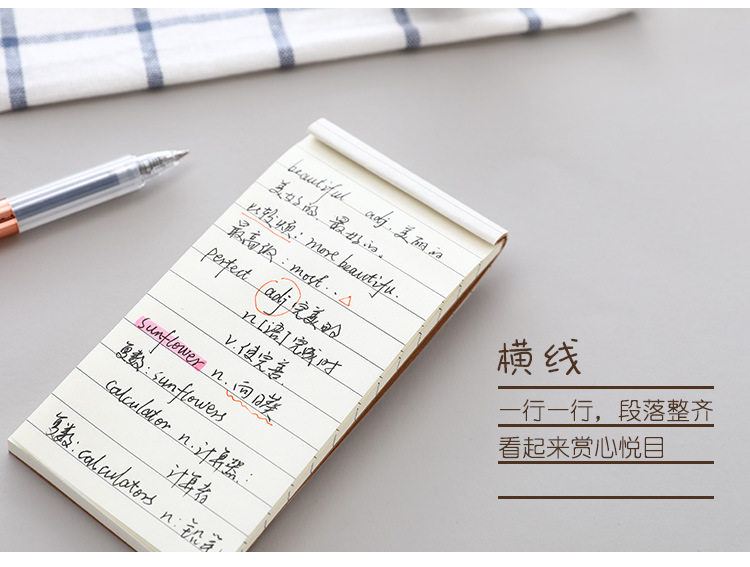 beautiful adj. 美丽的
美好的. 最好的.
比较级: more beautiful.
最高级: most...△
perfect adj. 完美的
n [语] 完成时
v. 使完善.
sunflower n. 向日葵
复数: sunflowers
calculator n. 计算器:
计算者
复数: calculators n:
横线
一行一行，段落整齐
看起来赏心悦目